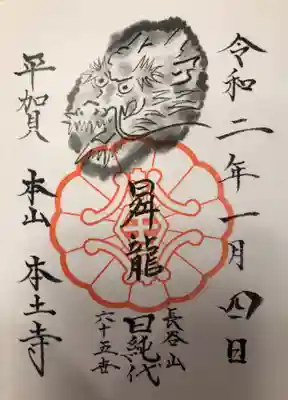 令和二年一月四日
昇龍
長谷山
日純代
六十五世
平賀 本山 本土寺